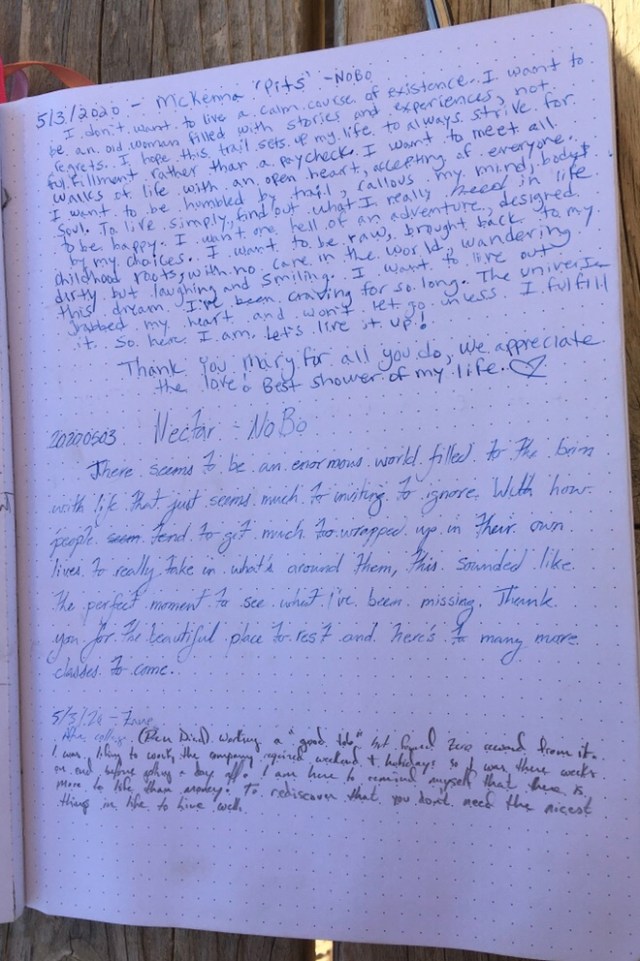 5/3/2020 - McKenna "Pits" - NOBO
I don't want to live a calm course of existence. I want to
be an old woman filled with stories and experiences, not
regrets. I hope this trail sets up my life to always strive for
fulfillment rather than a paycheck. I want to meet all
walks of life with an open heart, accepting of everyone.
I want to be humbled by trail, callous my mind, body &
soul. To live simply, find out what I really need in life
to be happy. I want one hell of an adventure, designed
by my choices. I want to be raw, brought back to my
childhood roots, with no care in the world, wandering
dirty but laughing and smiling. I want to live out
this dream I've been craving for so long. The universe
grabbed my heart and won't let go unless I fulfill
it. So here I am. Let's live it up!
Thank you Mary for all you do, we appreciate
the love! Best shower of my life. ♡
20200503 Nectar - NoBo
There seems to be an enormous world filled to the brim
with life that just seems much to inviting to ignore. With how
people tend to get much too wrapped up in their own
lives to really take in what's around them, this sounded like
the perfect moment to see what I've been missing. Thank
you for the beautiful place to rest and here's to many more
classes to come.
5/3/20 -
After college (Ben Died) working a "good" Job" but found zero reward from it.
I was living to work, the company required weekend & holidays so I was there weeks
on end before getting a day off. I am here to remind myself that there is
more to life than money. To rediscover that you don't need the nicest
thing in life to live well.